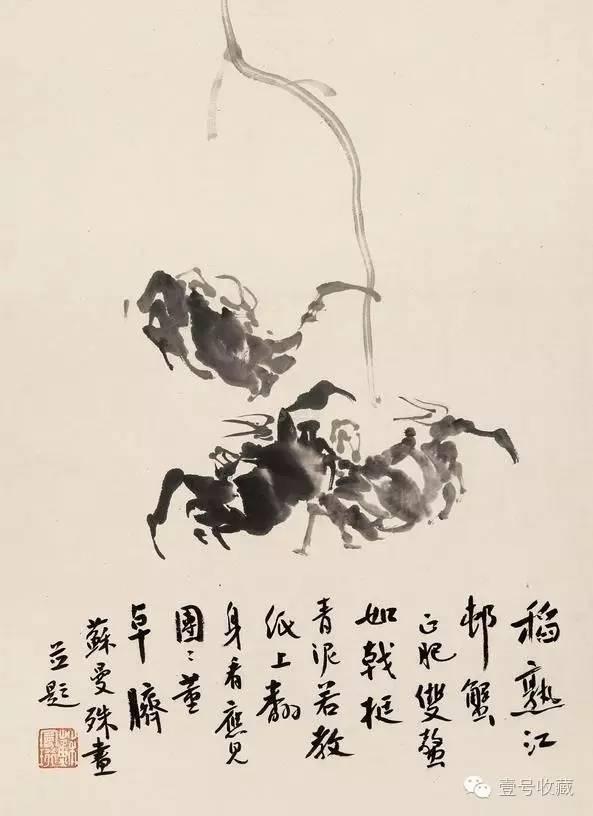 稻熟江
邨蟹
正肥雙螯
如戟挺
青泥若教
紙上翻
身看應見
團〻董
卓臍
蘇曼殊畫
並題
壹号收藏